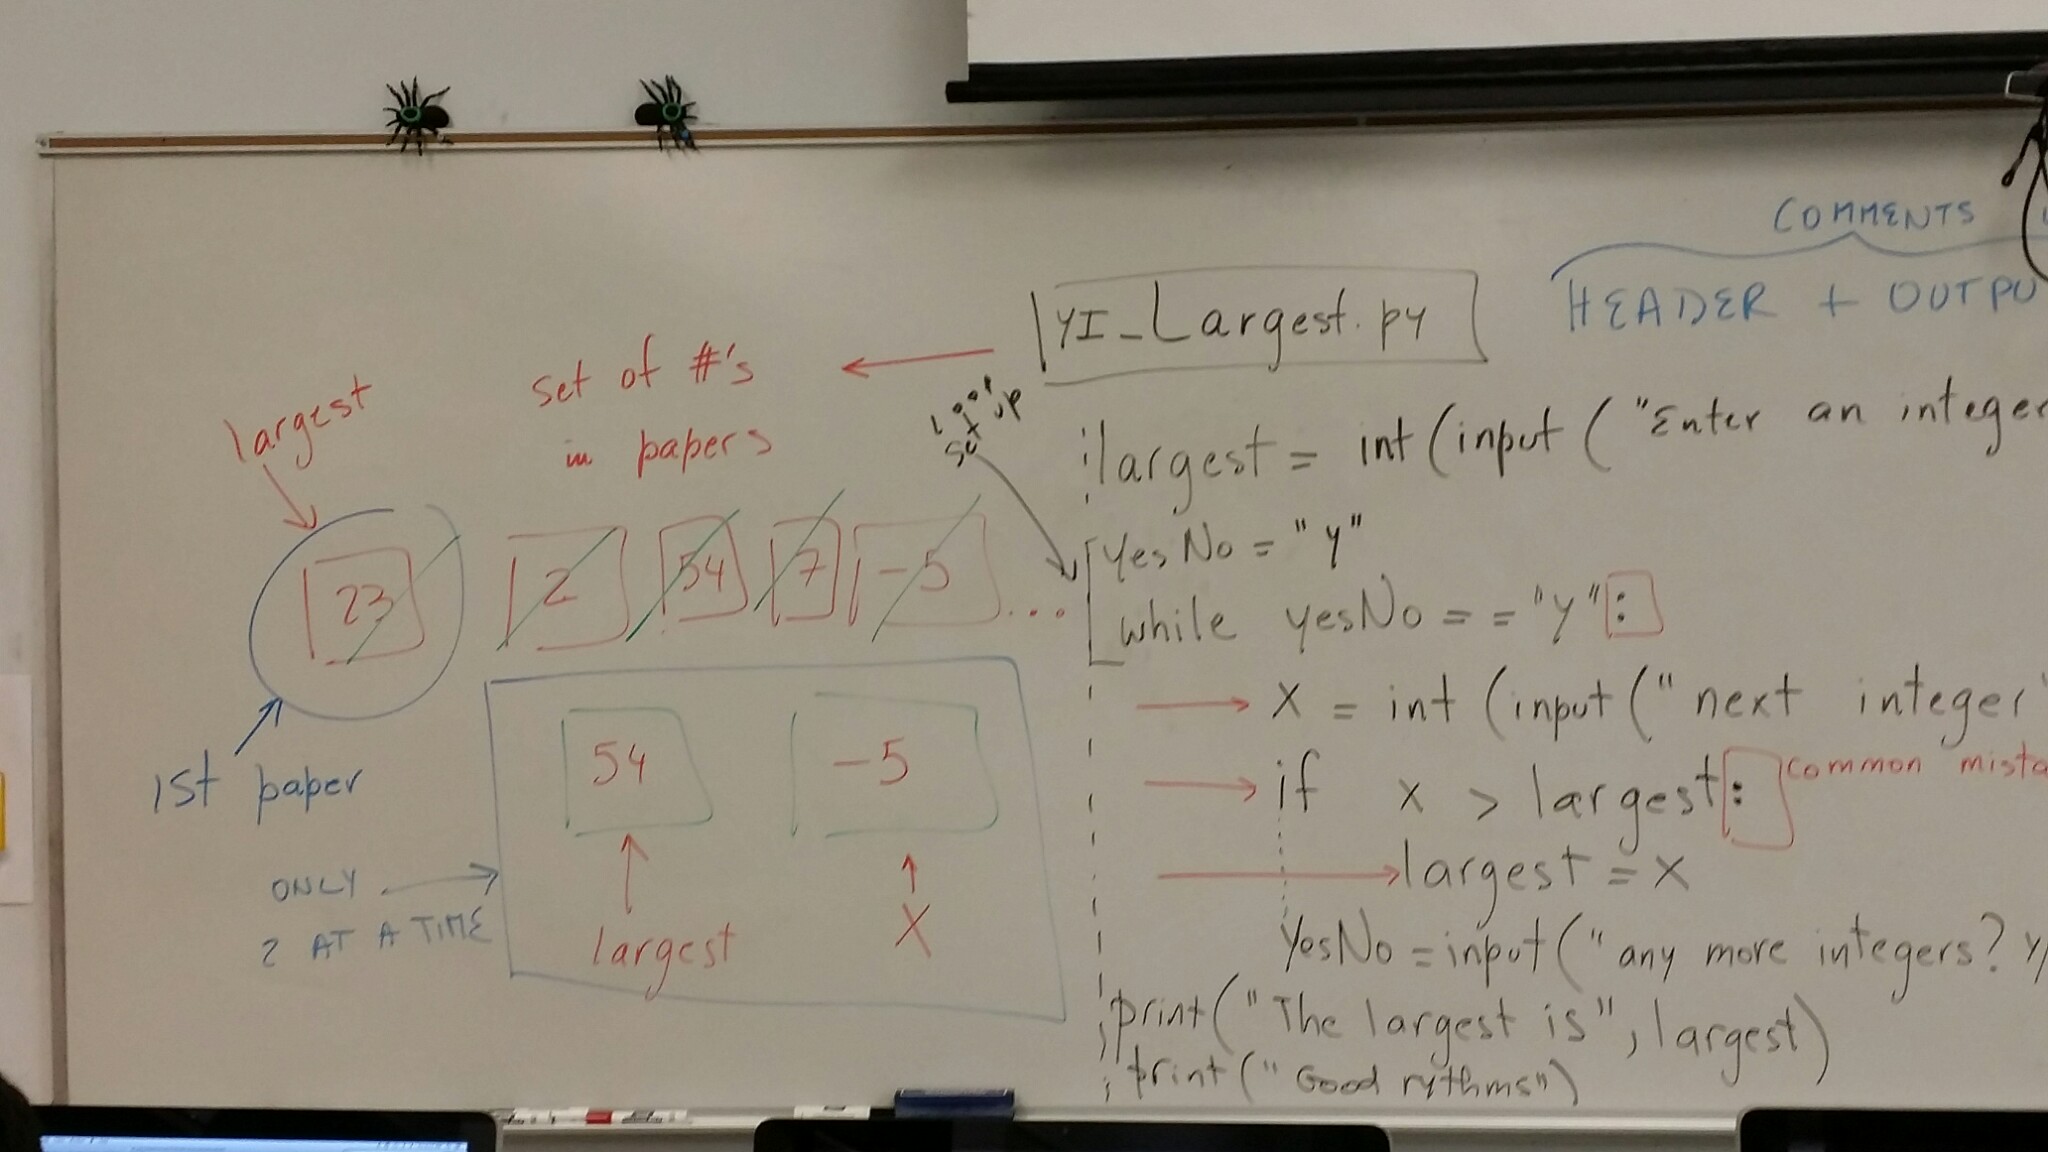 COMMENTS
HEADER + OUTPU
YI_Largest.py
set of #'s
in papers
largest
23 2 54 7 -5 ...
1st paper
ONLY
2 AT A TIME
54 -5
largest X
loop
set up
largest = int(input("Enter an integer
yesNo = "y"
while yesNo == "y":
x = int(input("next integer"
if x > largest:
common mista
largest = x
yesNo = input("any more integers? y/
print("The largest is", largest)
print("Good rythms")